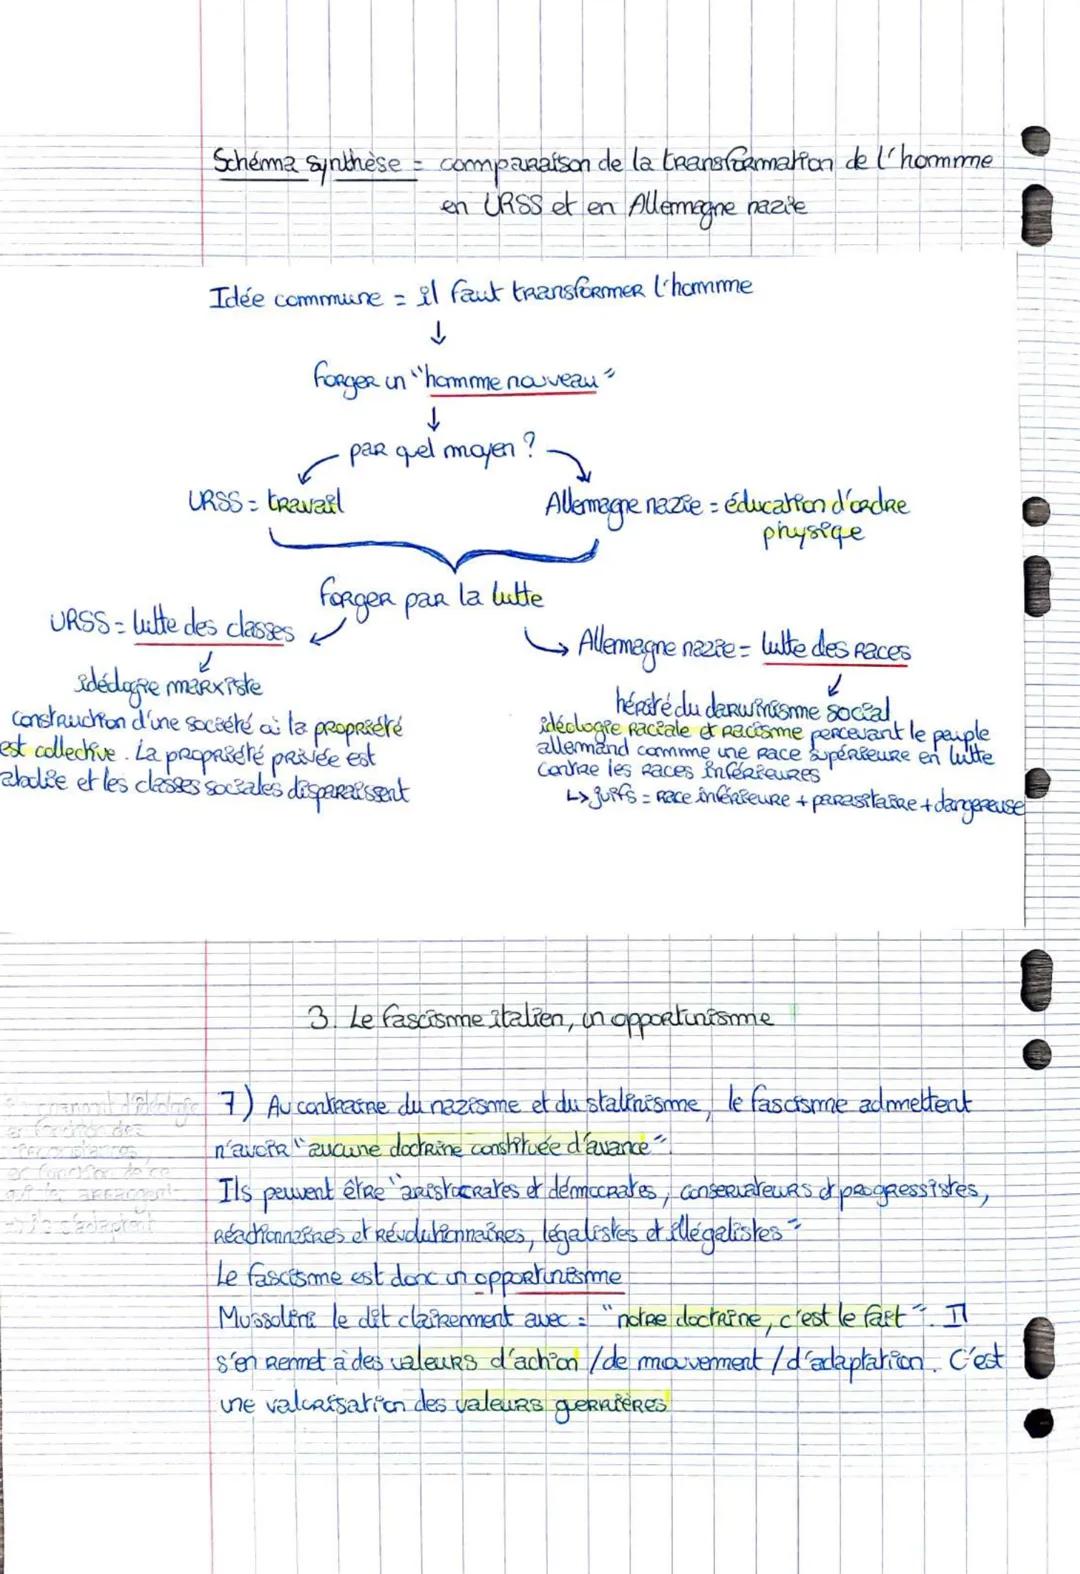 Schéma synthèse = comparaison de la transformation de l'homme
en URSS et en Allemagne nazie
Idée commune = il faut transformer l'homme
↓
forger un "homme nouveau"
↓
par quel moyen ?
URSS = travail
Allemagne nazie = éducation d'ordre
physique
forger par la lutte
URSS = lutte des classes
idéologie marxiste
construction d'une société où la propriété
est collective. La propriété privée est
abolie et les classes sociales disparaissent
→ Allemagne nazie = lutte des races
hérité du darwinisme social
idéologie raciale et racisme percevant le peuple
allemand comme une race supérieure en lutte
contre les races inférieures
↳ juifs = race inférieure + parasitaire + dangereuse
3. Le fascisme italien, un opportunisme
d'idéologie
en fonction des
en fonction de ce
qui les arrangent
→ ils s'adaptent
7) Au contraire du nazisme et du stalinisme, le fascisme admettent
n'avoir "aucune doctrine constituée d'avance".
Ils peuvent être "aristocrates et démocrates, conservateurs et progressistes,
réactionnaires et révolutionnaires, légalistes et illégalistes"
Le fascisme est donc un opportunisme
Mussolini le dit clairement avec = "notre doctrine, c'est le fait". Il
s'en remet à des valeurs d'action / de mouvement / d'adaptation. C'est
une valorisation des valeurs guerrières